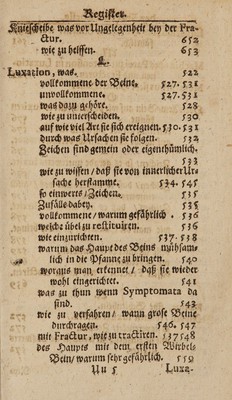 Register.
Kniescheibe was vor Ungelegenheit bey der Fra-
ctur. 652
wie zu helffen. 653
L.
Luxation, was. 522
vollkommene der Beine. 527. 531
unvollkommene. 527. 531
was dazu gehöre. 528
wie zu unterscheiden. 530
auf wie viel Art sie sich ereignen. 530. 531
durch was Ursachen sie folgen. 532
Zeichen sind gemein oder eigenthümlich.
533
wie zu wissen / daß sie von innerlicher Ur-
sache herstamme. 534. 545
so einwerts / Zeichen. 535
Zufälle dabey. 535
vollkommene / warum gefährlich. 536
welche übel zu restituiren. 536
wie einzurichten. 537. 538
warum das Haupt des Beins mühsam-
lich in die Pfanne zu bringen. 540
woraus man erkennet / daß sie wieder
wohl eingerichtet. 541
was zu thun wenn Symptomata da
sind. 543
wie zu verfahren / wann grose Beine
durchragen. 546. 547
mit Fractur, wie zu tractiren. 537 548
des Haupts mit dem ersten Wirbel-
Bein / warum sehr gefährlich. 559
Uu 5 Luxa-